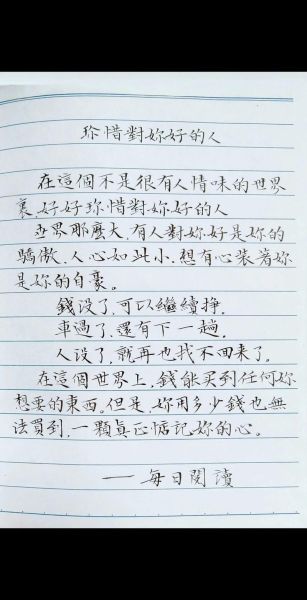 珍惜對妳好的人
在這個不是很有人情味的世界
裏,好好珍惜對妳好的人
世界那麼大,有人對妳好是妳的
驕傲,人心如此小,想有心裝着妳
是妳的自豪。
錢没了,可以繼續掙,
車過了,還有下一趟,
人没了,就再也找不回來了。
在這個世界上,錢能买到任何妳
想要的東西。但是,妳用多少錢也無
法買到,一顆真正惦记妳的心。
——每日閱讀